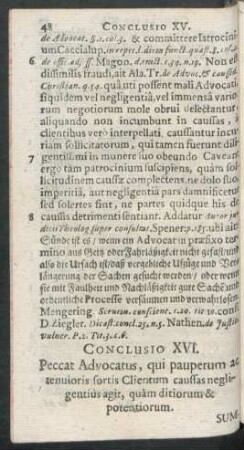 48 CONCLUSIO XV.
de Advocat. §. 1. col. 4. & committere latrocini
um Caccialup. in repet. l. diem funct.
de offic. adj. ff. Magon.
6 dissimilis fraudi, ait Ala. Tr. de Advoc. &
Christian. q. 54. quâ uti possent mali Advocati
siquidem vel negligentiâ, vel immensâ vario
rum negotiorum mole obrui offectantur
aliquando non incumbunt in caussas, à
clientibus verò interpellati, caussantur incu
riam sollicitatorum, qui tamen furunt dili
7 gentissimi in munere suo obeundo. Caveant
ergò tàm patrocinium suscipiens, quàm sol
licitudinem caussæ complectens, ne dolo suo,
imperitiâ, aut negligentiâ pars damnificetur
sed solertes sint, ne partes quidque his de
8 caussis detrimenti sentiant. Addatur
dicii Theolog super consultat. Spener. p. 185. ubi ait
Sünde ist es / wenn ein Advocat in præfixo ter-
mino aus Geitz oder Fahrläßigkeit nicht
also die Ursach ist / daß vergebliche Unkosten und Ver-
längerung der Sachen gesucht werden / oder wenn
sie mit Faulheit und Nachläßigkeit gute Sache und
ordentliche Processe versäumen und verwahrlosen.
Mengering. Scrutin. conscient. c. 20.
D. Ziegler. Dicast. concl. 25. n. 5. Nathen. de Justit.
vulner. P. 2. Tit. 3. c. 6.
CONCLUSIO XVI.
Peccat Advocatus, qui pauperum ac
tenuioris sortis Clientum caussas negli-
gentiùs agit, quàm ditiorum &
potentiorum.
SUM-